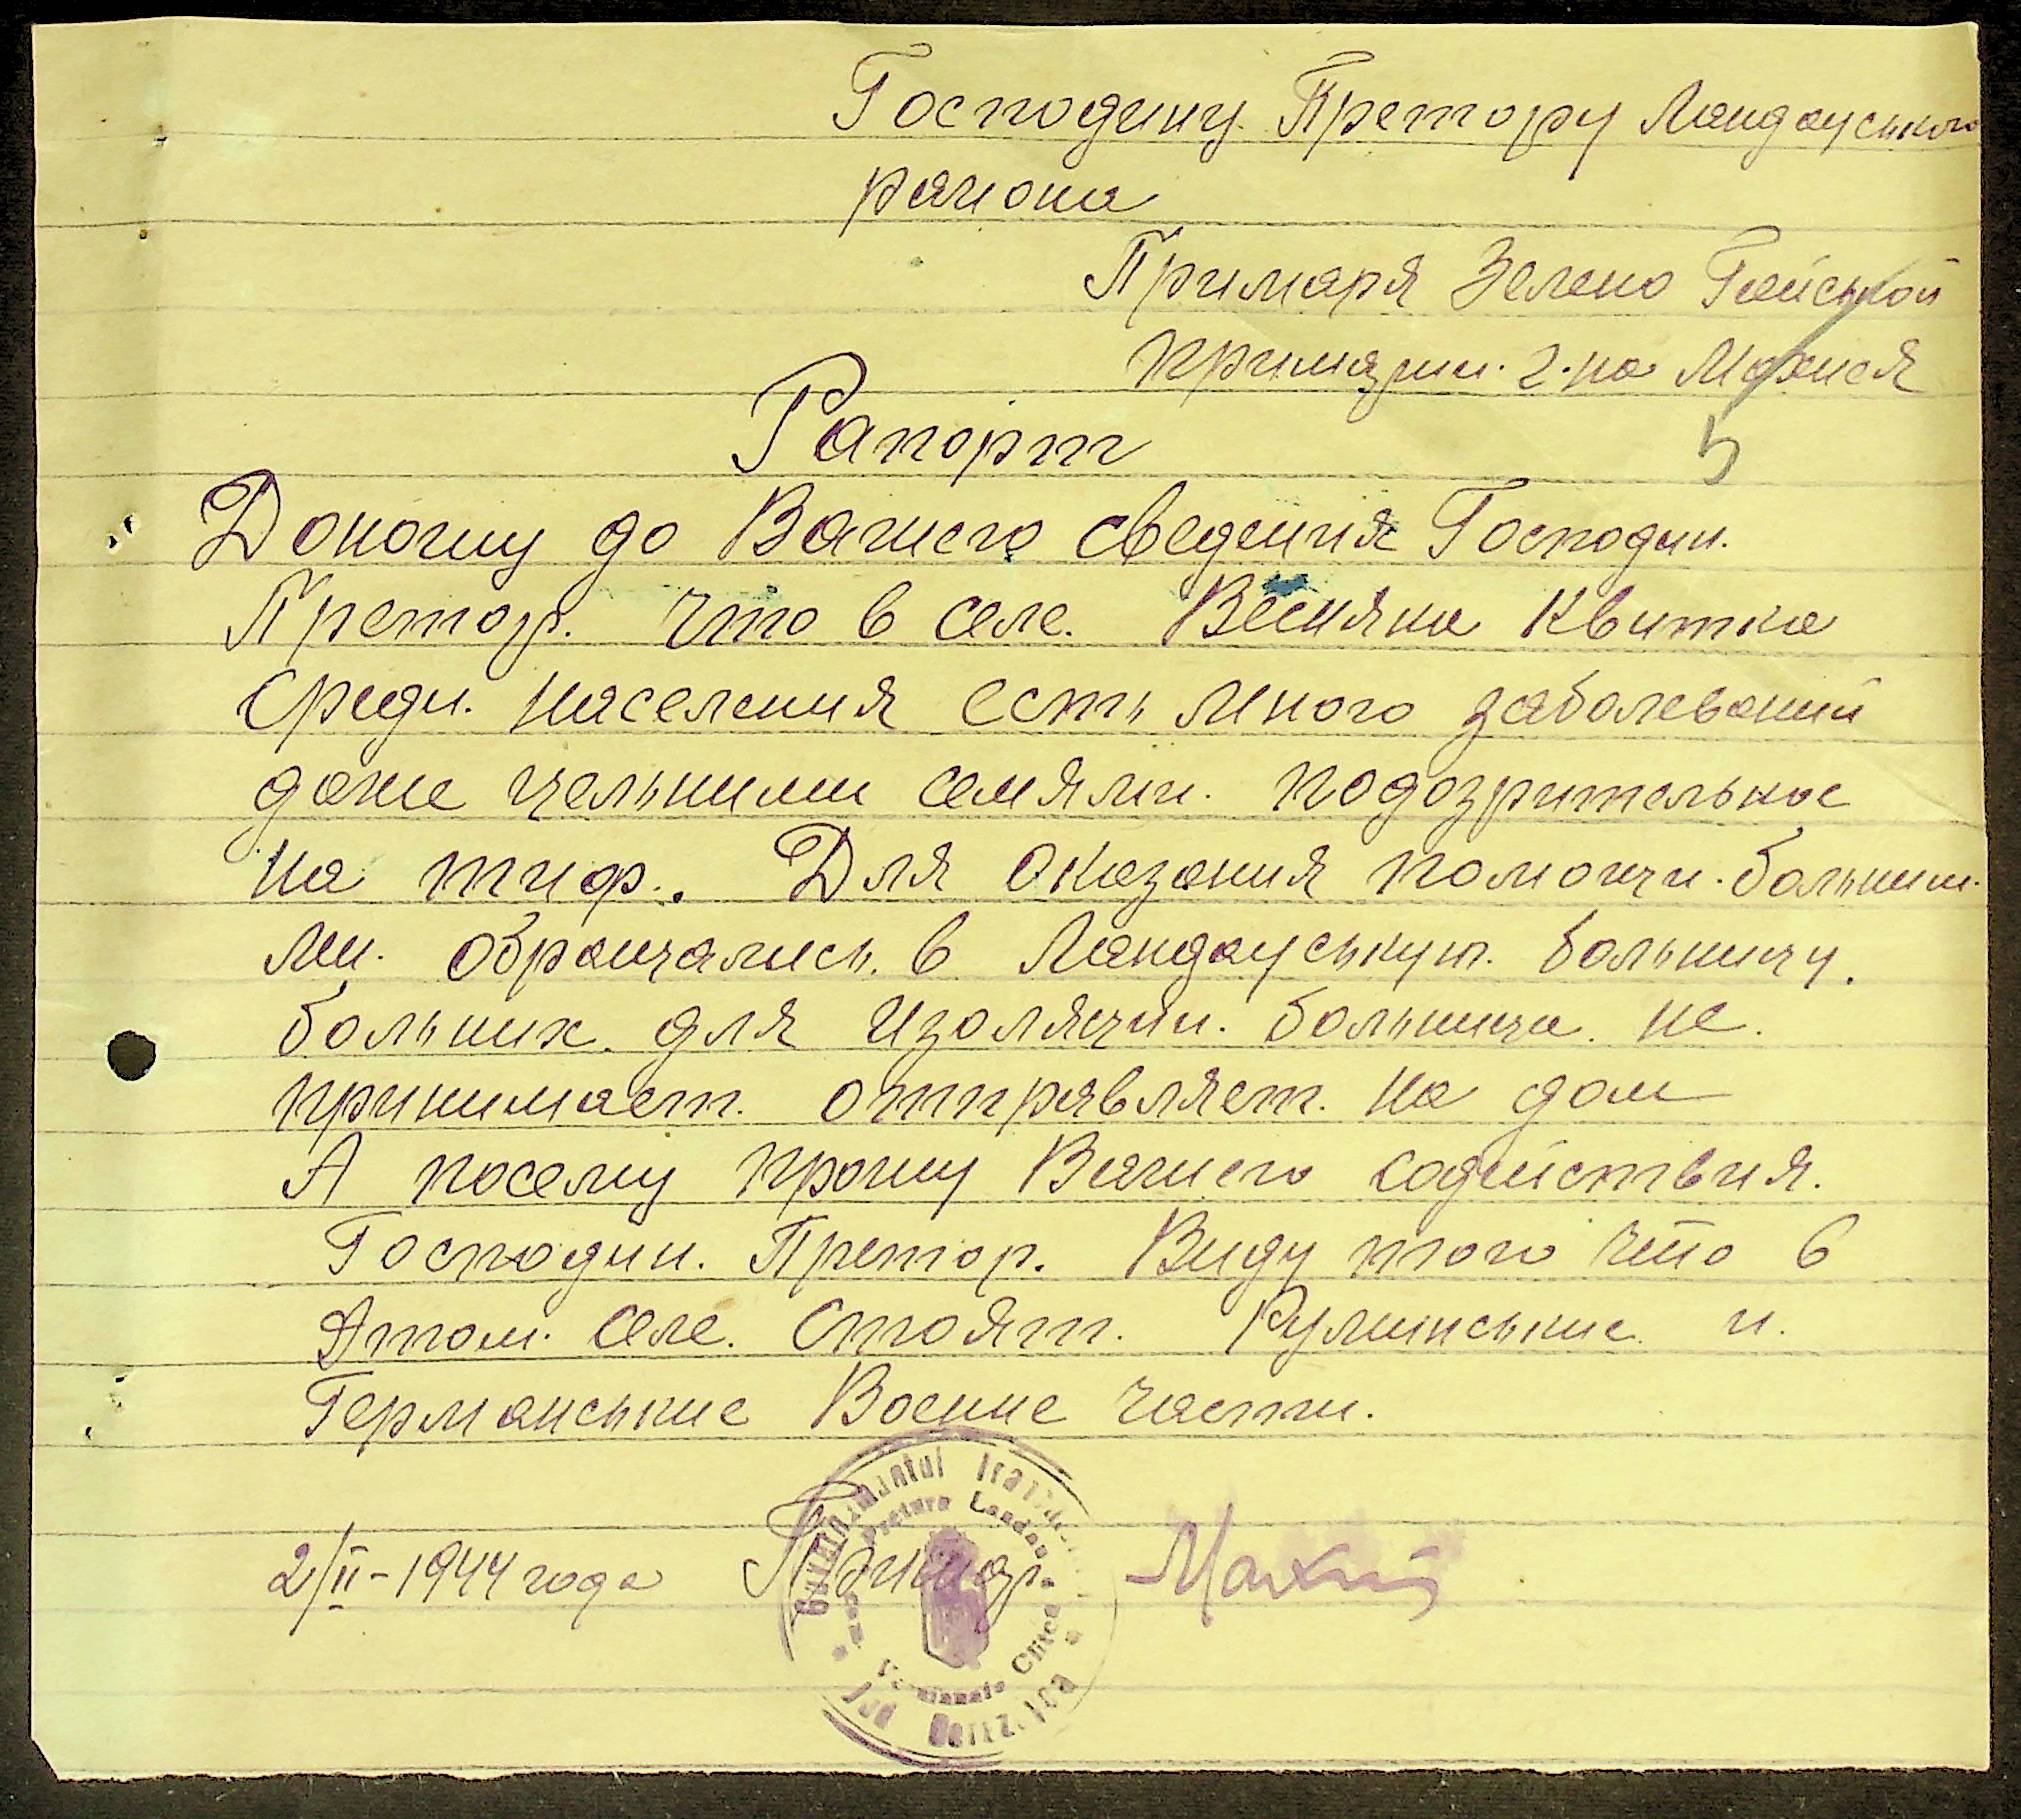 Господину Претору Ландауського
района
Примаря Зелено Гайськой
примарии г-на Махися
5
Рапорт
Доношу до Вашего сведения Господин.
Претор. что в селе. Весняна Квитка
среди. населения есть много заболеваний
даже цельними семями. подозрительное
на тиф.. Для оказания помощи. больним.
ми. обращались. в Ландауськую. больницу.
больних. для изоляции. больница. не.
принимает. отправляет. на дом
А посему прошу Вашего содействия.
Господин. Претор. Виду того что в
Этом. селе. стоят. Румынськие и.
Германськие Военые части.
2/II-1944 года Примар. Махий
Pretura Landau